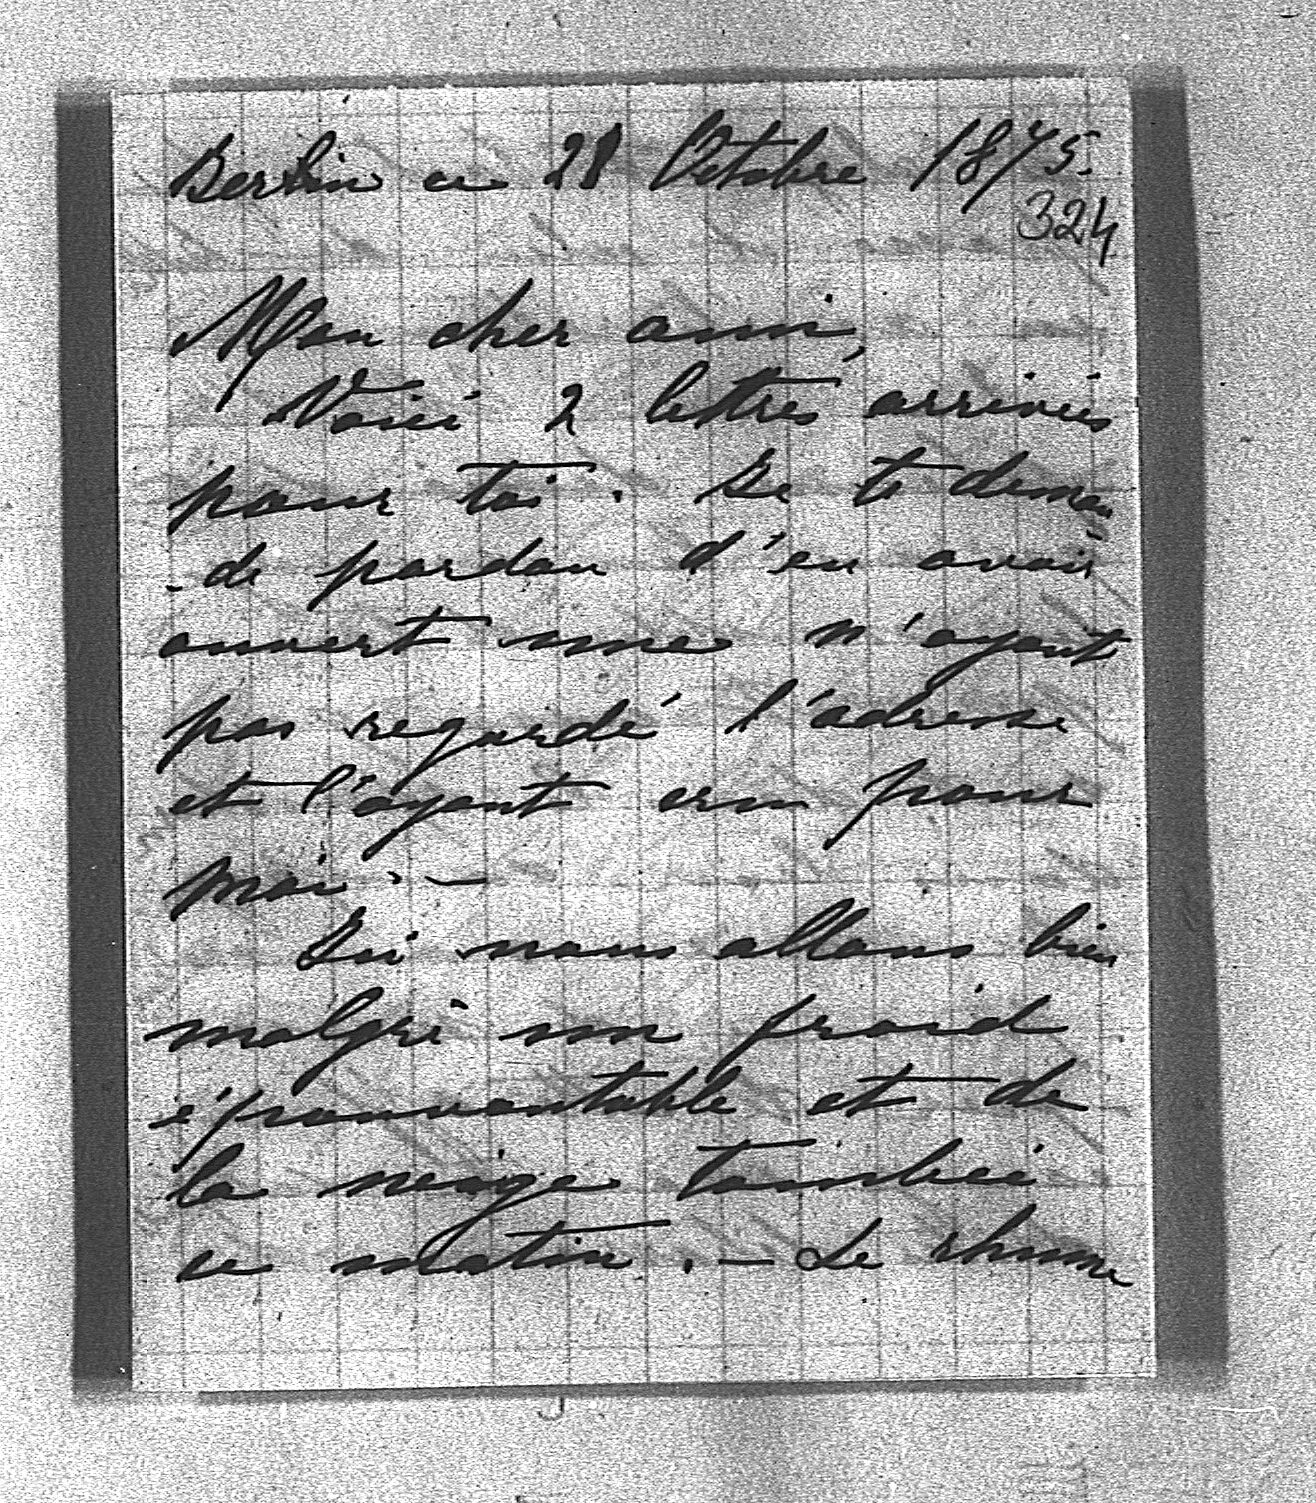 Berlin ce 28 Octobre 1875.
324
Mon cher ami,
Voici 2 lettres arrivées
pour toi. Je te deman
-de pardon d'en avoir
ouvert une n'ayant
pas regardé l'adresse
et l'ayant cru pour
moi. —
Ici nous allons bien
malgré un froid
épouvantable et de
la neige tombée
ce matin. — Le rhume